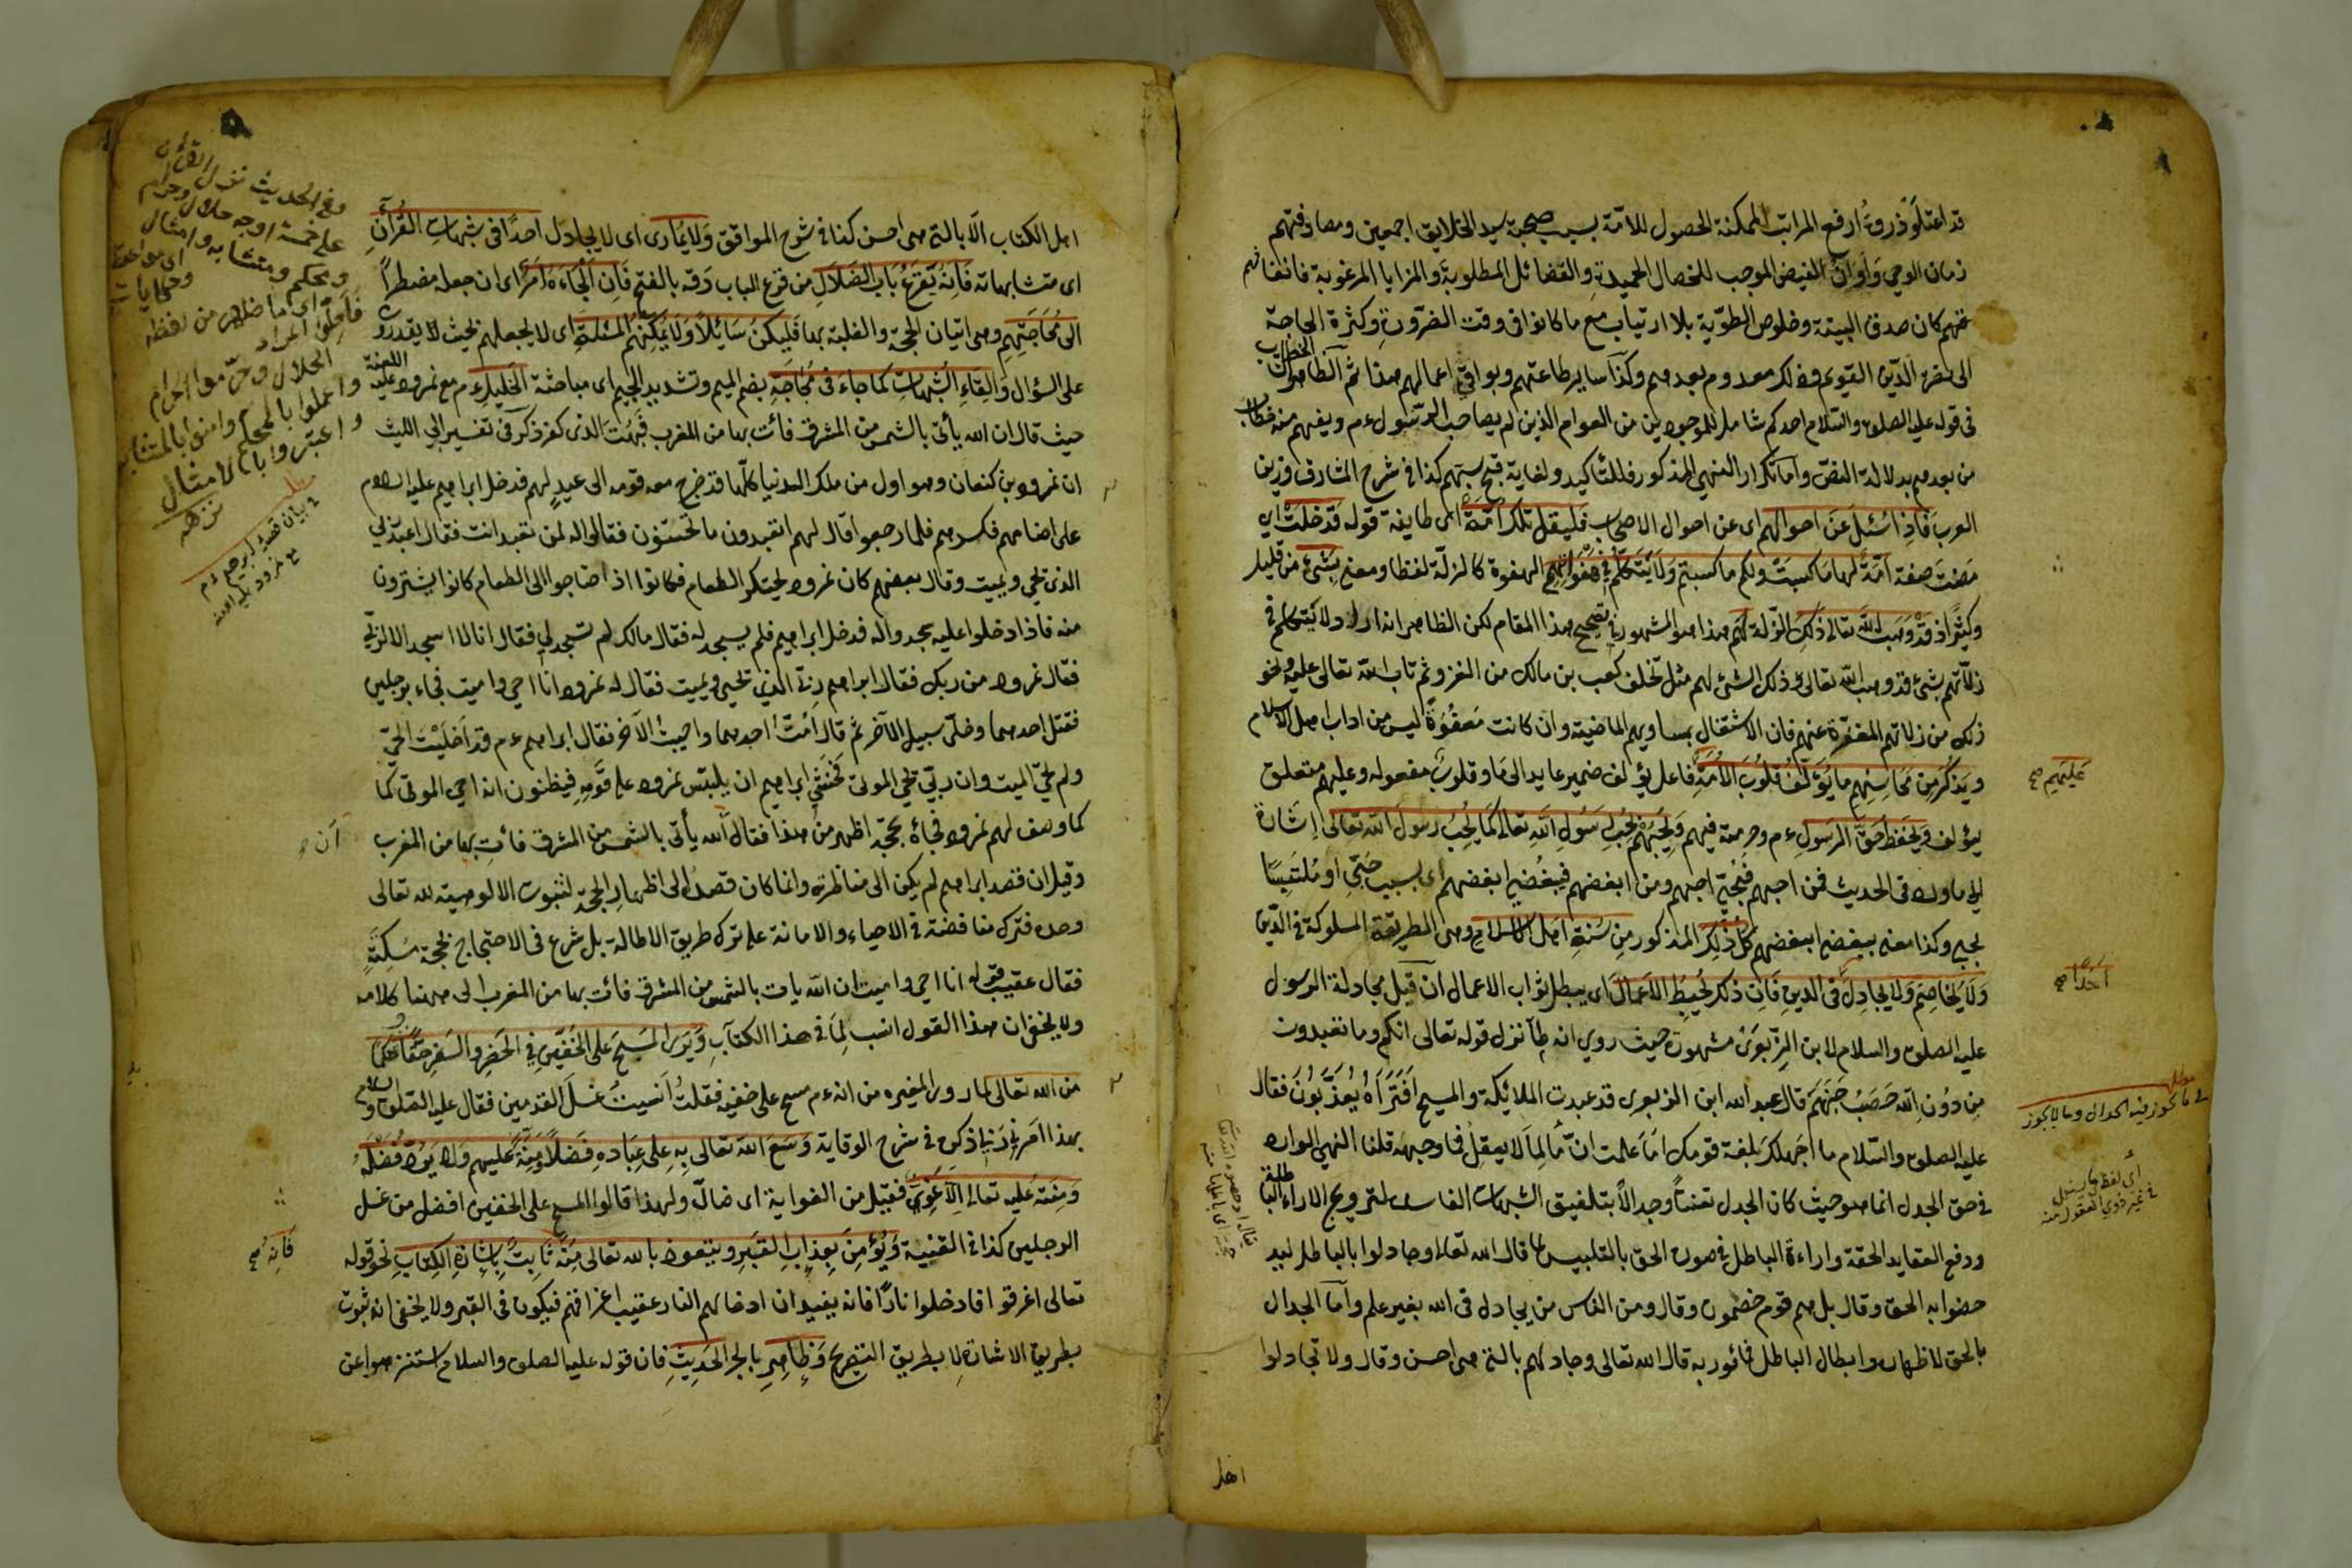 قد اعتلو ذروة ارفع المراتب الممكنة الحصول للامّة بسبب صحبة سيد الخلايق اجمعين ومصادفتهم
زمان الوحي وَاَوَانَ الفيض الموجب للخصال الحميدة والفضائل المطلوبة والمزايا المرغوبة فانفاقهم
كان صدق البينة وخلوص الطوّية بلا ارتياب مع ما كانوا فى وقت الضرورة وكثرة الحاجة
الى نصرة الدّين القويم وذلك معدوم بعدهم وكذا ساير طاعتهم وبواقى اعمالهم هذا ثم الظاهر ان الخطاب
فى قوله عليه الصلوة والسّلام احدكم شامل للموجودين من العوام الذين لم يصاحب الرّسول ءم ويفهم منه خطاب
من بعدهم بدلالة النصّ واما تكرار النهى المذكور فللتاكيد ولغاية قبح سبّهم كذا فى شرح المشارق وزين
العرب فَاِذا سُئِلَ عَنْ احوالهم اى عن احوال الاصحاب فَليقل تلك اُمّةٌ اى طايفة قوله قَدْ خَلَتْ اى
مضت صفة اُمّة لَها مَا كَسَبَتْ ولكم ما كسبتم وَلَا يَتَكَلّمُ فِى هَفَواتِهِم الهفوة كالزلّة لفظا ومعنى بشئ من قليل
وكثير اذ قَدْ وَهَبَ اللّه تعالى ذلِك الزّلة لَهُمْ هذا هو المشهور فى تصحيح هذا المقام لكن الظاهر انه اراد ولا يتكلم فى
زلّاتهم بشئ قد وهب اللّه تعالى ذلك الشئ لهم مثل تخلف كعب بن مالك من الغزو ثم تاب اللّه تعالى عليه ونحو
ذلك من زلاتهم المغفرة عنهم فان الاشتغال بمساويهم الماضية وان كانت مَعْفُوّةً ليس من اداب اهل الاسلام
ويَذكُر مِن مَحَاسِنِهِم ما يُؤَلّفُ قلُوبَ الاُمّةِ فاعل يؤلف ضمير عايد الى ما وقلوب مفعوله وعليهم متعلق
يؤلف ويَحْفَظُ حَقَّ الرسُولِ ءم وحرمته فيهم ويُحِبُّهُمْ بِحُبِّ رَسُولِ اللّهِ تعالى كَمَا يُحِبُّ رسُولَ اللّه تعالى اِشَارة
الى ما ورد فى الحديث فمن احبهم فبحبّى احبهم ومن ابغضهم فببُغضى ابغضهم اى بسبب حُبّى او مُلتَبِسًا
بحبى وكذا معنى ببغضى ابغضهم كُلُّ ذلِكَ المذكور مِنْ سُنّةِ اهلِ الاسلام وهى الطريقة المسلوكة فى الدّين
وَلَا يُخاصِم وَلا يجَادِل فى الدين فَاِنّ ذلك يُحْبِطُ الاَعمَالَ اى يبطل ثواب الاعمال ان قيل مجادلة الرسول
عليه الصلوة والسلام لابن الزّبعرى مشهورة حيث روي انه لما نزل قوله تعالى انكم وما تعبدون
مِنْ دُونِ اللّه حَصَبُ جَهَنّمَ قال عبد اللّه ابن الزبعرى قد عبدت الملائكة والمسيح اَفَتَرَاهُ يُعَذّبُونَ فقال
عليه الصلوة والسّلام ما اجهلك بلغة قومك اما علمت انّ مَا لِمَا لا يعقل فما وجهه قلنا النهى الوارد
فى حق الجدل انما هو حيث كان الجدل تعنتًا وجدالاً بتلفيق الشبهات الفاسدة لترويج الاراء الباطلة
ودفع العقايد الحقة واراءة الباطل فى صورة الحق بالتلبيس كما قال اللّه تعالى وجادلوا بالباطل ليد
حضوا به الحق وقال بل هم قوم خصمون وقال ومن الناس من يجادل فى اللّه بغير علم وامّا الجدال
بالحق لاظهاره وابطال الباطل فمأمور به قال اللّه تعالى وجادلهم بالتى هى احسن وقال ولا تجادلوا
اهل
عَلَيهِم صح
اَحَدًا صح
مطلب
فى ما يجوز فيه الجدال وما لا يجوز
اهل الكتاب الّا بالتى هى احسن كذا فى شرح المواقف وَلَا يُمارى اى لا يجادل احدًا فى شبهات القُرآنِ
اى متشابهاته فَاِنّهُ يَقرَعُ بَابَ الضّلَالِ من قرع الباب دقه بالفتح فَاِن الْجَاءهُ اَمْرٌ اى ان جعله مضطراً
الى مُحَاجّتِهِم وهى اتيان الحجة والغلبة بها فَليكُنْ سَائِلاً وَلَا يُمَكِنْهُم المسْئلة اى لا يجعلهم بحيث لا يقدرون
على السؤال والقاءِ الشّبهاتِ كما جاء فى مُحَاجّةِ بضم الميم وتشديد الجيم اى مباحثة الخَليل ءم مع نمرود عليه اللعنة
حيث قال ان اللّه يأتى بالشمس من المشرق فائت بها من المغرب فبهت الذى كفر ذكر فى تفسير ابى الليث
ان نمرود بن كنعان وهو اول من ملك الدنيا كلّها قد خرج معه قومه الى عيدٍ لهم فدخل ابراهيم عليه السلام
على اصنامهم فكسرهم فلما رجعوا قال لهم اتعبدون ما تنحتون فقالوا له لمن تعبد انت فقال اعبد ربى
الذى يحيى ويميت وقال بعضهم كان نمرود يحتكر الطعام فكانوا اذا احتاجوا الى الطعام كانوا يشترون
منه فاذا دخلوا عليه سجدوا له فدخل ابراهيم فلم يسجد له فقال مالك لم تسجد لى فقال انا لا اسجد الا لربى
فقال نمرود من ربك فقال ابراهيم ربى الذى يحيى ويميت فقال له نمرود انا احيى واميت فجاء برجلين
فقتل احدهما وخلّى سبيل الآخر ثم قال اَمَتُّ احدهما واحييت الآخر فقال ابراهيم ءم قد اَحْيَيْتَ الحىّ
ولم تحى الميت وان ربّى يحيى الموتى فَخشى ابراهيم ان يلبّس نمرود على قومِهِ فيظنون انه احيى الموتى كما
كما وصف لهم نمرود فجاءه بحجة اظهر من هذا فقال اللّه يأتى بالشمس من المشرق فائتِ بها من المغرب
وقيل ان قصد ابراهيم لم يكن الى مناظرته وانما كان قصدُه الى اظهار الحجة لثبوت الالوهية لله تعالى
وحده فترك مناقضته فى الاحياء والاماتة على ترك طريق الاطالة بل شرع فى الاحتجاج بحجة مُسكِتَةٍ
فقال عقيب قوله انا احيى واميت ان اللّه يات بالشمس من المشرق فائت بها من المغرب الى ههنا كلامه
ولا يخفى ان هذا القول انسب لِمَا فى هذا الكتابِ وَيَرى المَسْحَ عَلى الخُفّينِ فى الحَضرِ والسّفرِ حَقًّا وحُكمًا
من اللّه تعالى لما روى المغيرة من انه ءم مسح على خفيه فقلتُ اَنَسِيتَ غَسلَ القدمين فقال عليه الصلوة والسلام
بهذا اَمَرنى رَبّى ذكره فى شرح الوقاية وَسّعَ اللّه تعالى بِهِ عَلى عِبَادهِ فَضلاً ومِنّةً عَليهِم وَلا يَرُدُّ فضلَهُ
ومِنّته عَليه تعالى اِلّا غَوِىٌّ فعيل من الغواية اى ضالّ ولهذا قالوا المسح على الخفين افضل من غسل
الرجلين كذا فى القنية وَيُؤمِنُ بِعذابِ القَبرِ ويتعوذ باللّه تعالى مِنهُ ثابِتٌ بِاِشَارةِ الكِتَابِ نحو قوله
تعالى اغرقوا فادخلوا نارًا فانه يفيد ان ادخالهم النار عقيب اغراقهم فيكون فى القبر ولا يخفى انه ثبوت
بطريق الاشارة لا بطريق التصريح وَظاهِرِ بالجر الحَديثِ فان قوله عليه الصلوة والسلام استنزهوا عن
وفى الحديث نزل القرأن
على خمسة اوجه حلال وحرام
ومحكم ومتشابه وامثال
فاحلّوا
الحلال وحرّموا الحرام
واعملوا بالمحكم وامنوا بالمتشابه
واعتبروا بالامثال
مطلب
فى بيان قصة ابرهيم ءم
مع نمرود عليه اللعنة
فَاِنّهُ صح